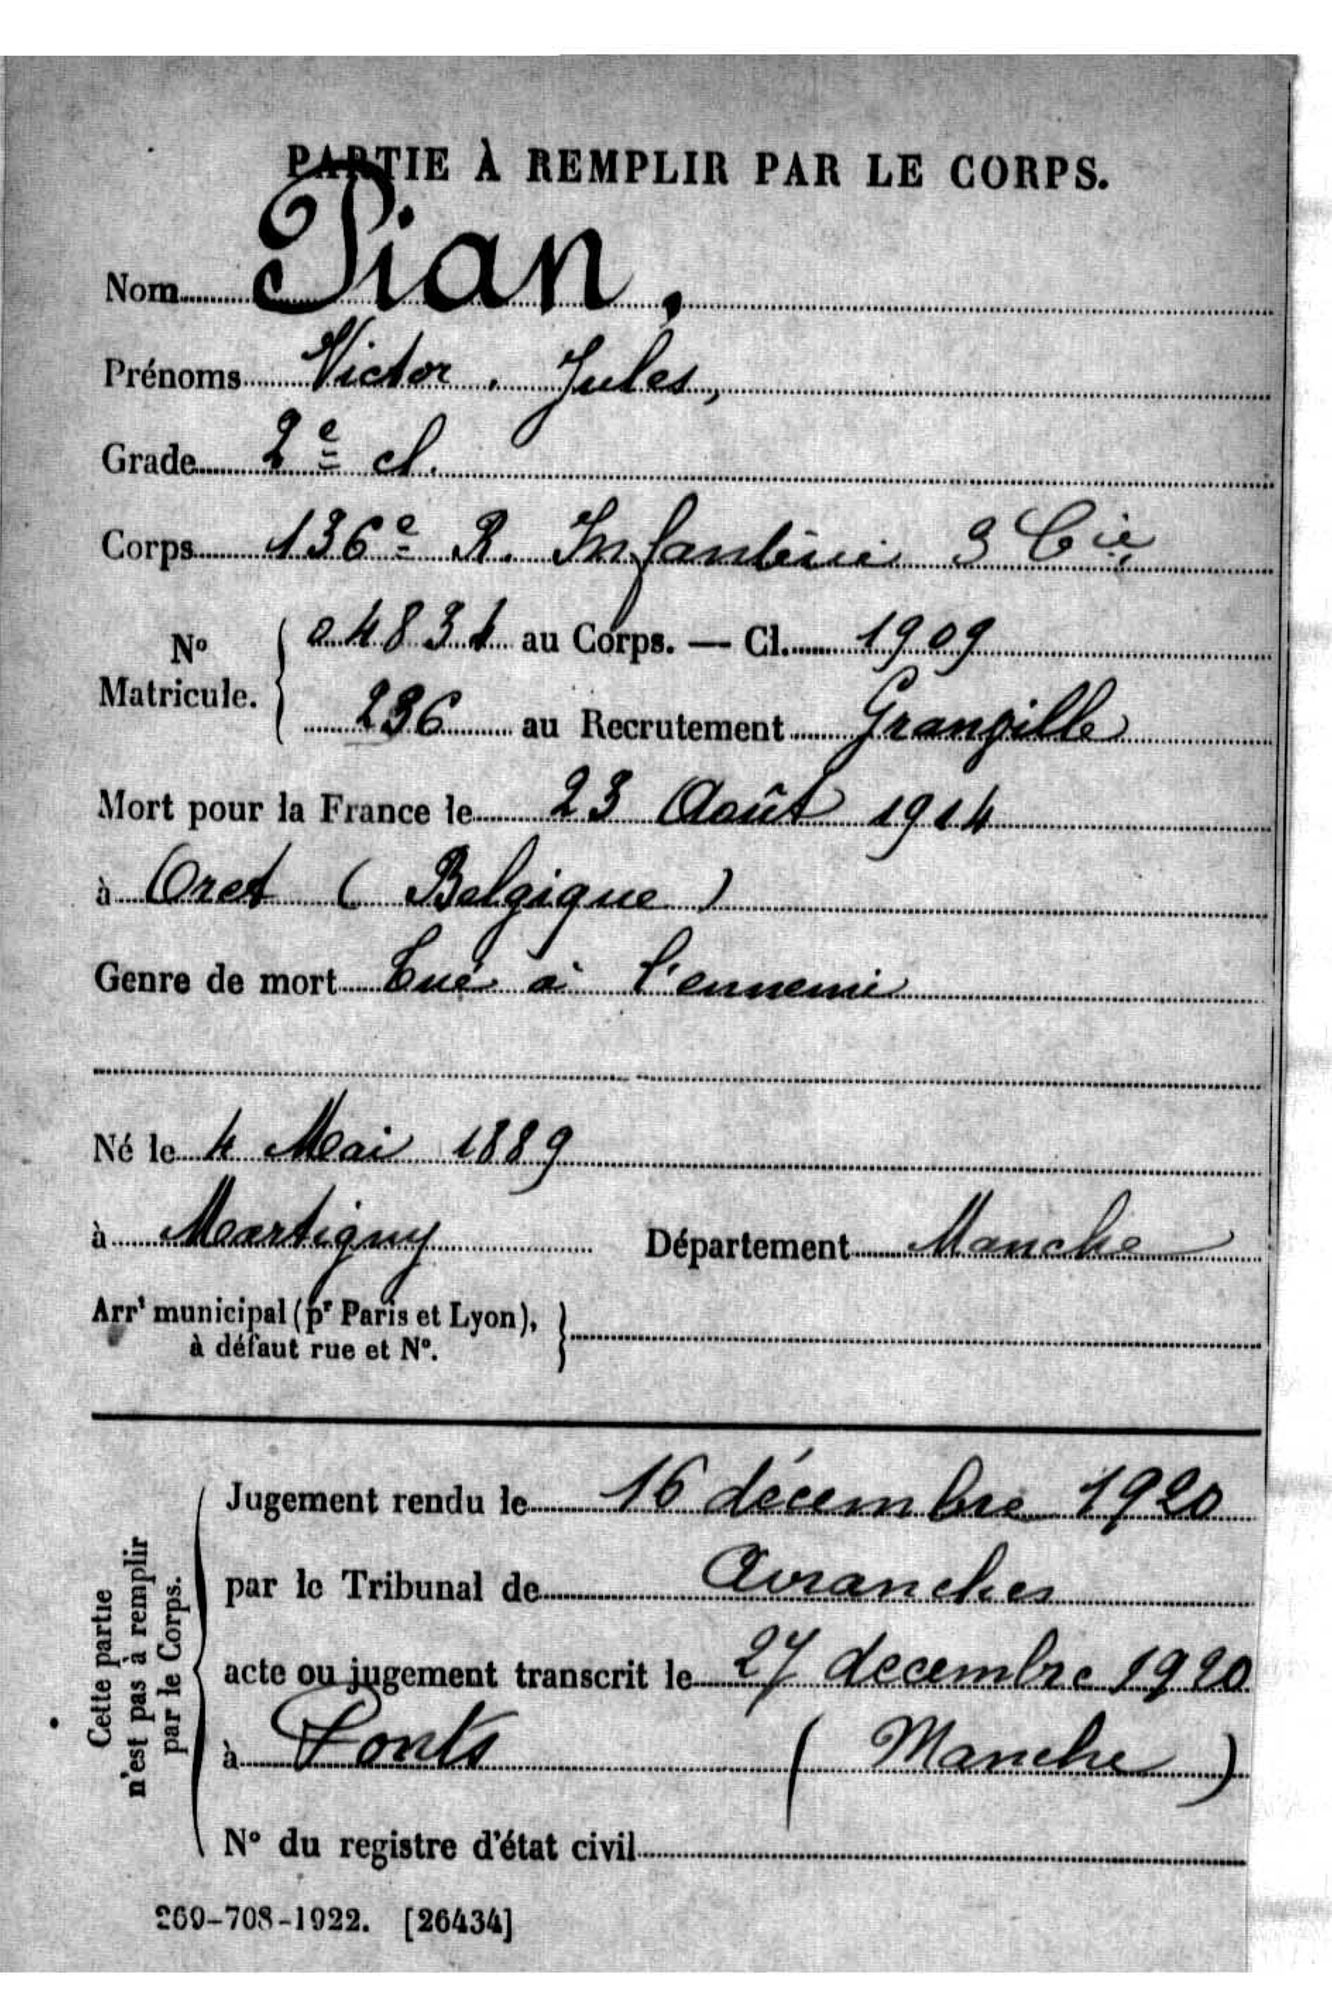 PARTIE À REMPLIR PAR LE CORPS.
Nom Pian,
Prénoms Victor. Jules,
Grade 2e cl.
Corps 136e R. Infanterie 3 Cie
No Matricule. { 04831 au Corps. — Cl. 1909
236 au Recrutement Granville
Mort pour la France le 23 Août 1914
à Oret (Belgique)
Genre de mort Tué à l'ennemi
Né le 4 Mai 1889
à Martigny Département Manche
Arrt municipal (pr Paris et Lyon), }
à défaut rue et No.
Cette partie
n'est pas à remplir
par le Corps.
Jugement rendu le 16 décembre 1920
par le Tribunal de Avranches
acte ou jugement transcrit le 27 decembre 1920
à Ponts (Manche)
No du registre d'état civil
269-708-1922. [26434]